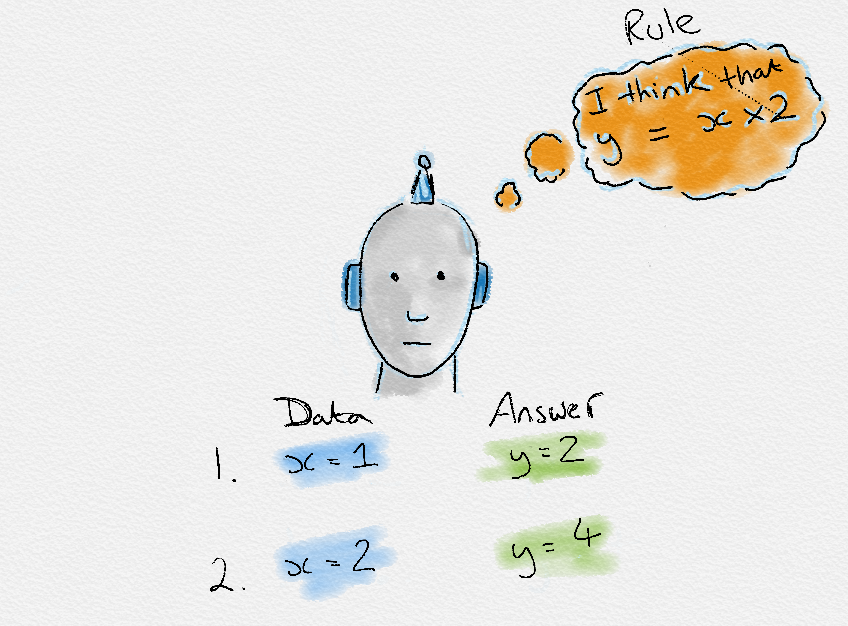 Rule
I think that
y = x × 2
Data Answer
1. x = 1 y = 2
2. x = 2 y = 4